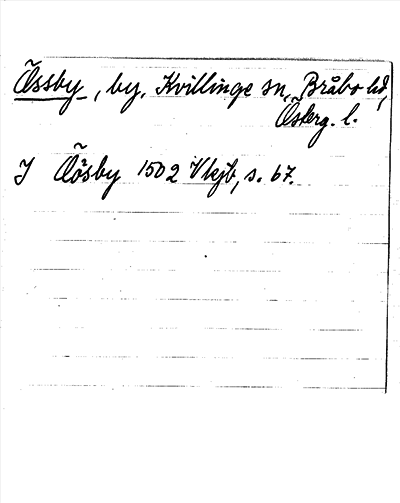 Össby, by, Kvillinge sn, Bråbo hd,
Österg. l.
J Öösby 1502 Vkjb, s. 67.